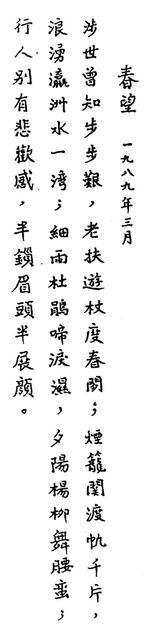 春望 一九八九年三月
涉世曾知步步艱，老扶遊杖度春閒；煙籠関渡帆千片，
浪湧瀛洲水一湾；細雨杜鵑啼淚濕，夕陽楊柳舞腰蛮；
行人別有悲歡感，半鎖眉頭半展顔。